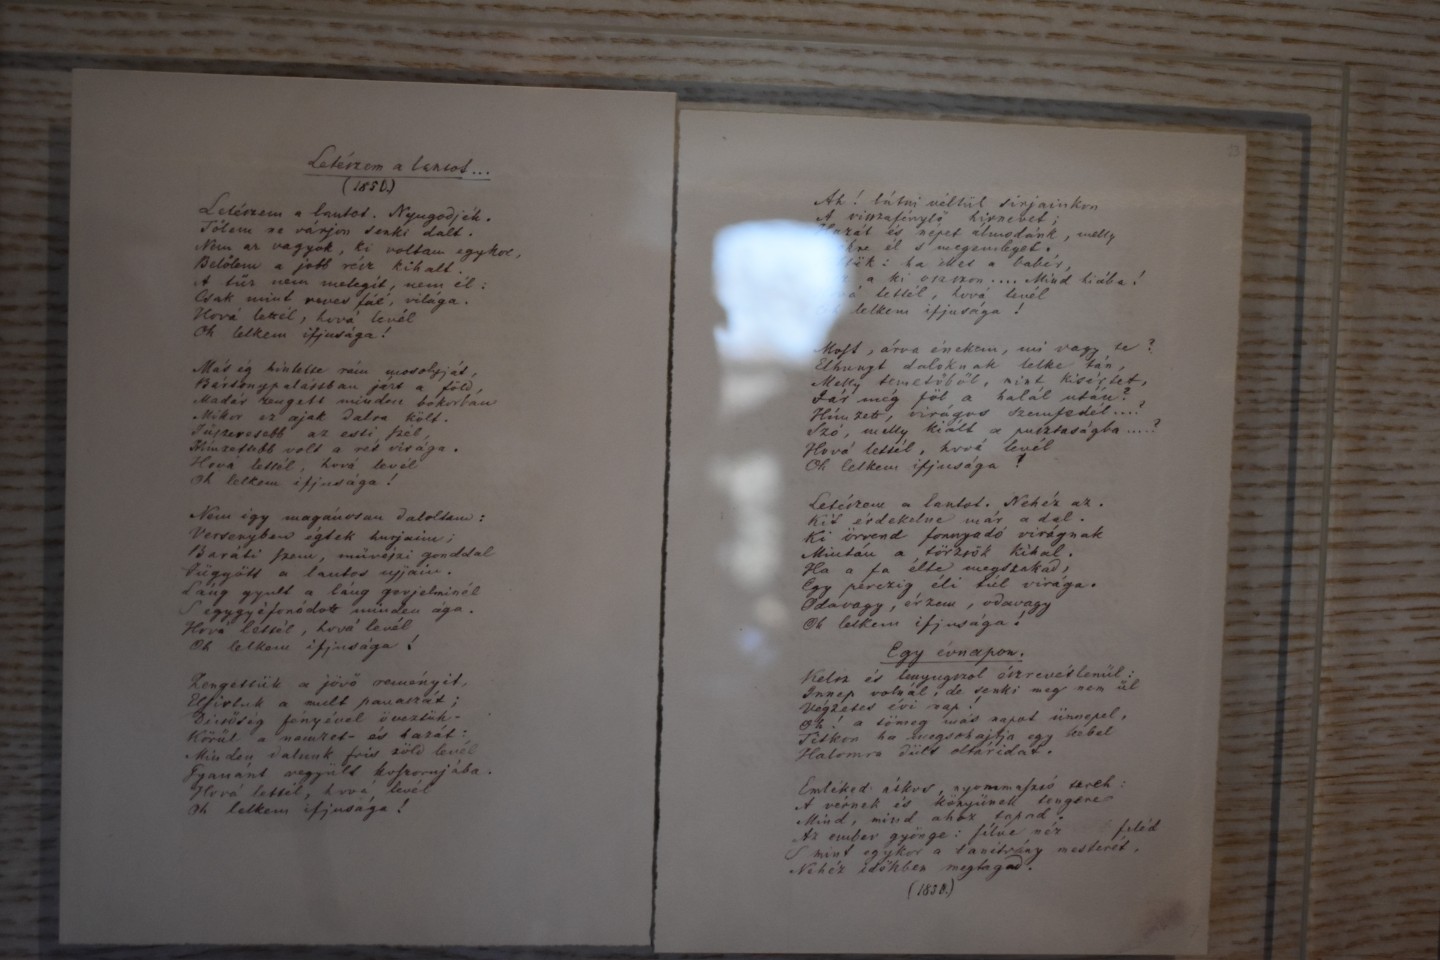 Letészem a lantot...
(1850.)
Letészem a lantot. Nyugodjék.
Tőlem ne várjon senki dalt.
Nem az vagyok, ki voltam egykor,
Belőlem a jobb rész kihalt.
A tűz nem melegít, nem él:
Csak mint reves fáé, világa.
Hová lettél, hová levél
Oh lelkem ifjusága!
Más ég hintette rám mosolyját,
Bársonypalástban járt a föld,
Madár zengett minden bokorban
Mikor ez ajak dalra költ.
Fűszeresebb az esti szél,
Hímzettebb volt a rét virága.
Hová lettél, hová levél
Oh lelkem ifjusága!
Nem így magánosan daloltam:
Versenyben égtek húrjaim;
Baráti szem, művészi gonddal
Függött a lantos ujjain.
Láng gyult a láng gerjelminél
S eggyéfonódott minden ága.
Hová lettél, hová levél
Oh lelkem ifjusága!
Zengettük a jövő reményit,
Elsirtuk a mult panaszát;
Dicsőség fényével öveztük
Körűl a nemzet- és hazát:
Minden dalunk friss zöld levél
Gyanánt vegyült koszorujába.
Hová lettél, hová levél
Oh lelkem ifjusága!
Ah! látni véltük sirjainkon
A visszafénylő hírnevet;
Hazát és népet álmodánk, mely
él s megemleget.
ha illet a babér,
a ki osszon.... Mind hiába!
lettél, hová levél
lelkem ifjusága!
Most, árva énekem, mi vagy te?
Elhunyt daloknak lelke tán,
Melly temetőből, mint kisértet,
Jár még föl a halál után?
Hímzett, virágos szemfedél....?
Szó, melly kiált a pusztaságba....?
Hová lettél, hová levél
Oh lelkem ifjusága!
Letészem a lantot. Nehéz az.
Kit érdekelne már a dal.
Ki örvend fonnyadó virágnak
Miután a törzsök kihal.
Ha a fa élte megszakad,
Egy perczig éli túl virága.
Odavagy, érzem, odavagy
Oh lelkem ifjusága!
Egy évnapon.
Kelsz és lenyugszol észrevétlenűl:
Innep volnál, de senki meg nem ül
Végzetes évi nap!
Oh! a tömeg más napot ünnepel,
Titkon ha megsohajtja egy kebel
Halomra dűlt oltáridat.
Emléked átkos, nyommasztó tereh:
A vérnek és könyűnek tengere
Mind, mind ahoz tapad.
Az ember gyönge: félve néz feléd
S mint egykor a tanítvány mesterét,
Nehéz időkben megtagad.
(1850.)